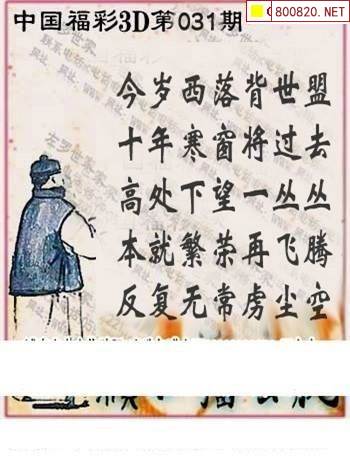 中国福彩3D第031期
800820.NET
今岁西落背世盟
十年寒窗将过去
高处下望一丛丛
本就繁荣再飞腾
反复无常虏尘空